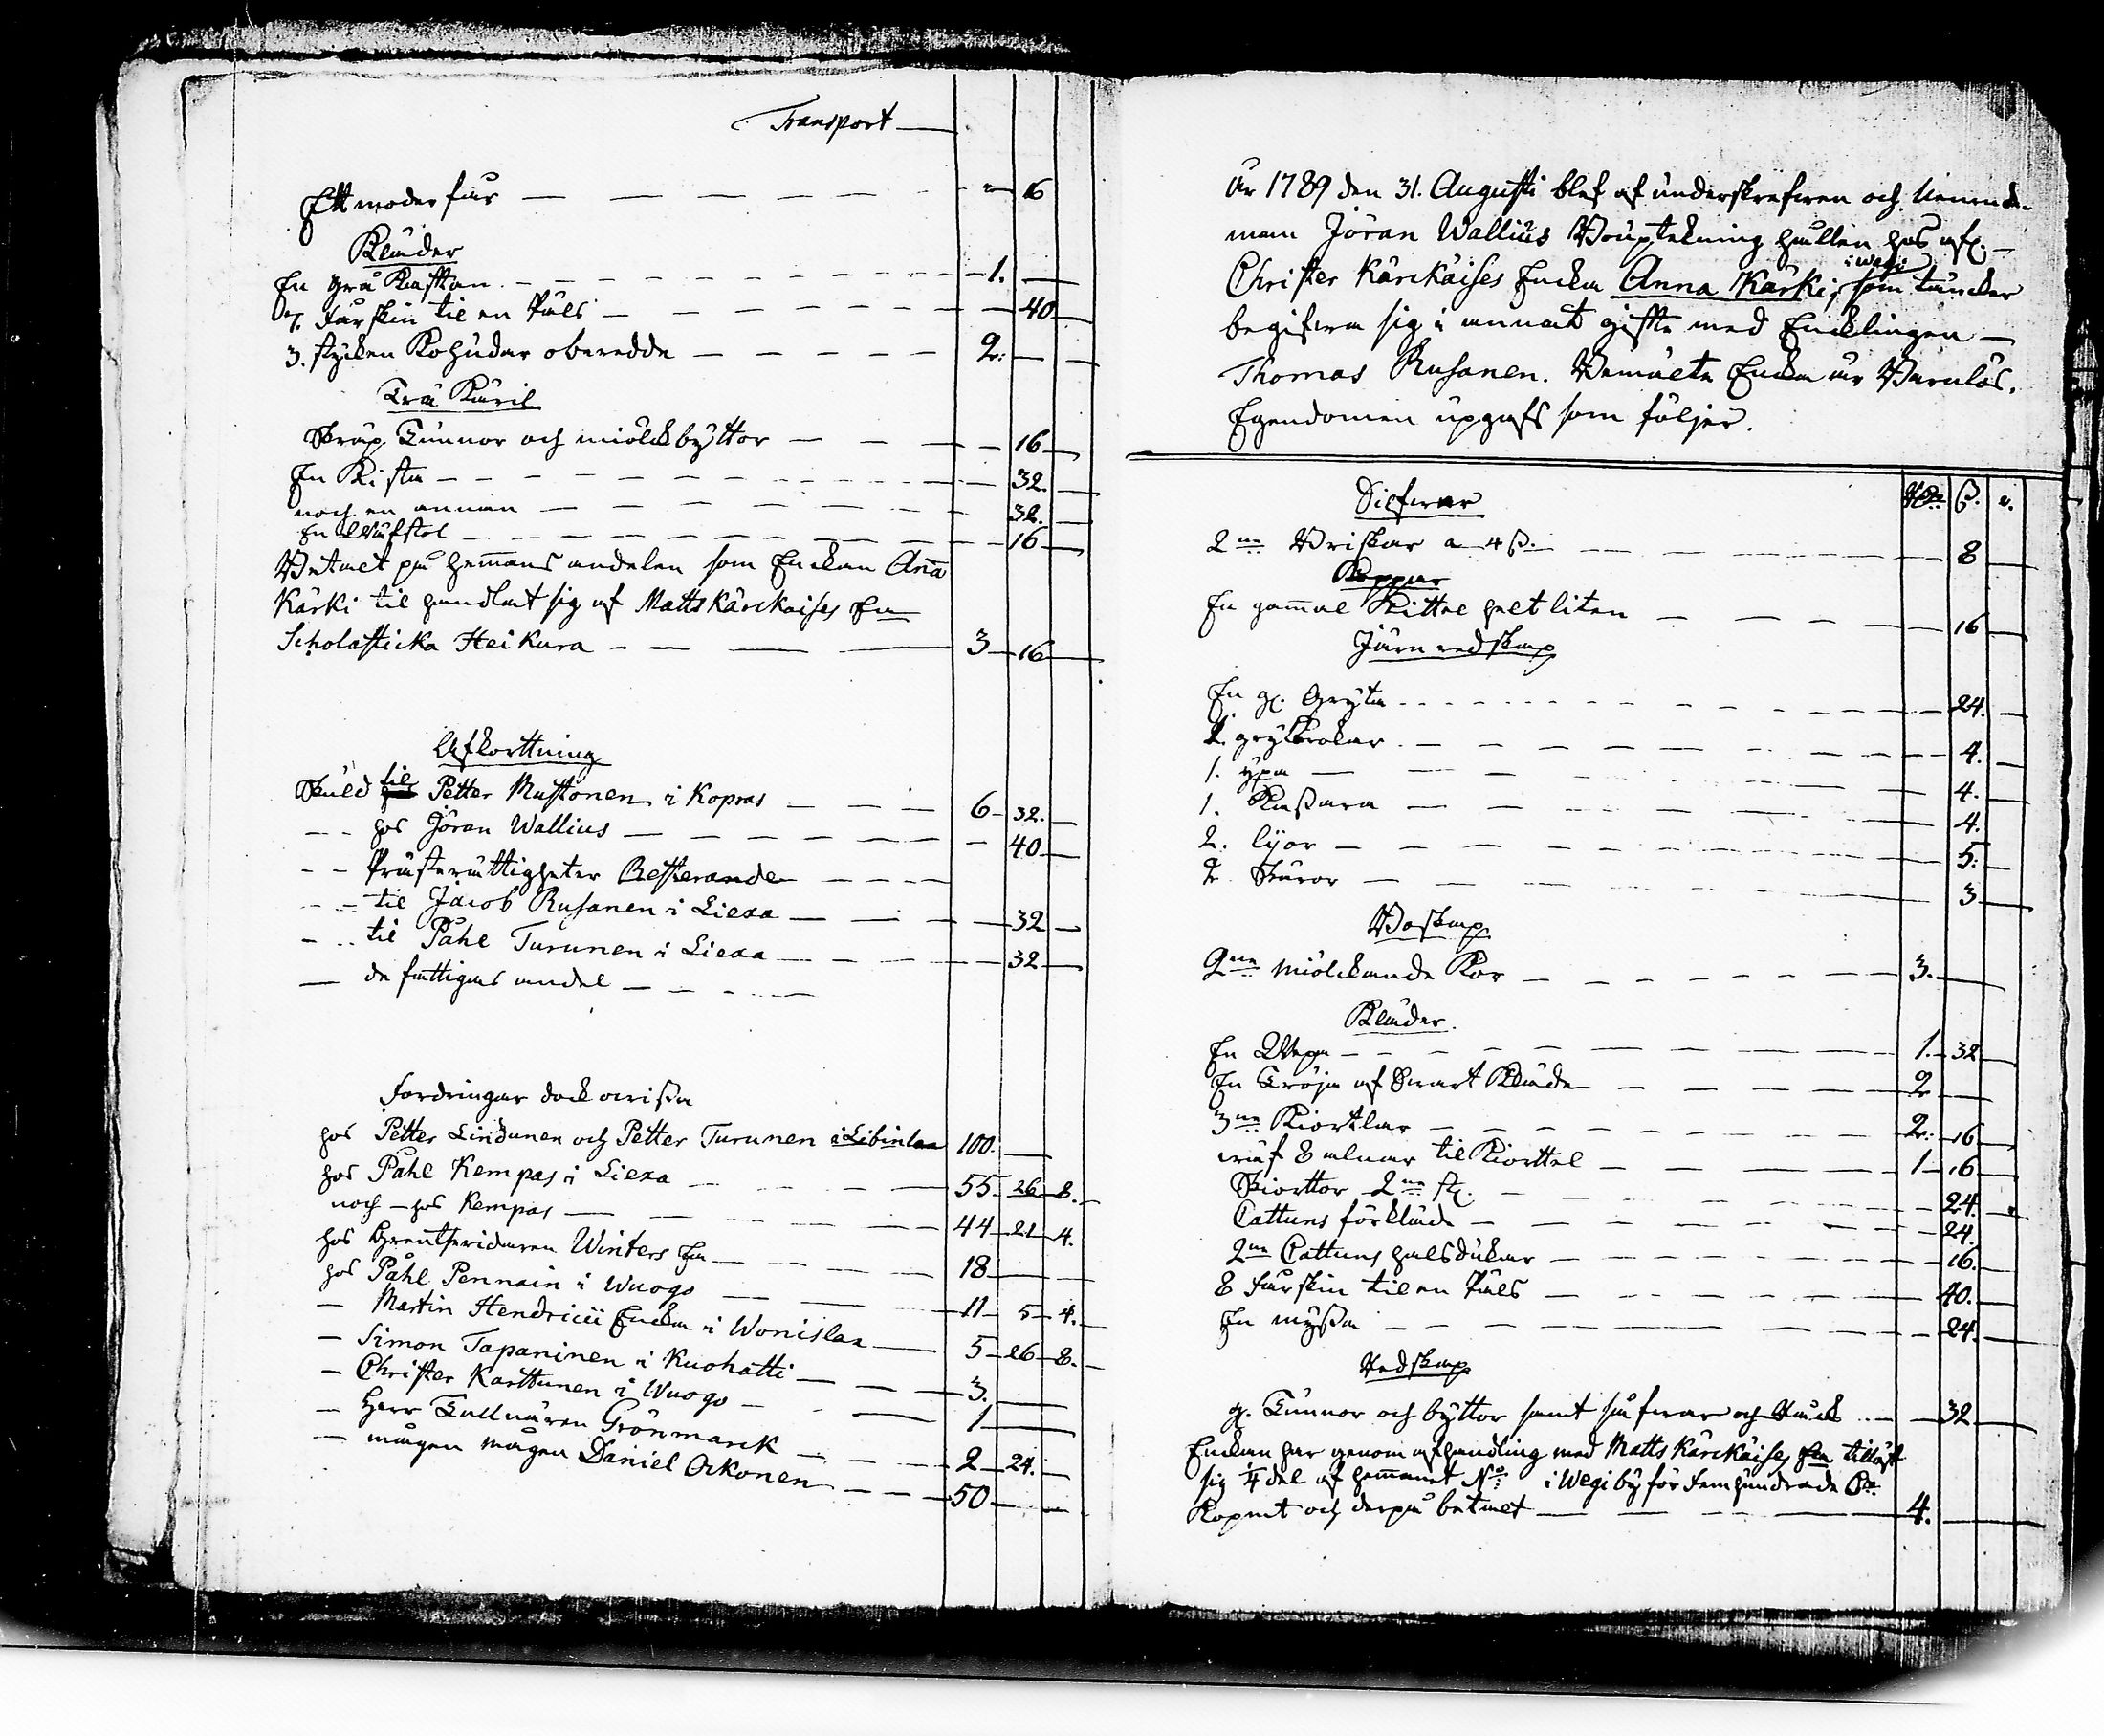 Transport
Ett moder får — 16
Kläder
En grå Kafftan — 1.
7. Fårskin til en Päls — 40
3. stycken Kohudar oberedde — 2.
Trä Käril
Skräp Tunnor och miölckbyttor — 16
En Kista — 32.
noch en annan — 32.
En Wäfstol — 16
Betalt på hemans andelen som Enckan Ana
Kärki til handlat sig af Matts Kärckäises En
Scholasticka Heikura — 3 — 16
Afkorttning
Skuld til Petter Mustonen i Kopras — 6 — 32.
— hos Jöran Wallius — 40
— Prästerättigheter Resterande —
— til Jacob Rusanen i Liexa — 32
— til Påhl Turunen i Liexa — 32
— de fattigas andel —
Fordringar dock ovissa
hos Petter Lindunen och Petter Turunen i Libinlax 100.
hos Påhl Kempas i Liexa — 55 — 26 — 8.
noch — hos Kempas — 44 — 21 — 4.
hos Gränsridaren Winters En — 18
hos Påhl Pennain i Wuogo — 11 — 5 — 4.
— Martin Hendricii Encka i Wonislax — 5 — 26 — 8.
— Simon Tapaninen i Kuohatti — 3.
— Christer Karttunen i Wuogo — 1
— Herr Tullnären Grönmarck — 2 — 24.
— mågen mågen Daniel Ockonen — 50
År 1789 den 31. Augusti blef af underskrefwen och Nämnde-
man Jöran Wallius Bouptekning hållen hos afl.
Christer Kärckäises Encka Anna Kärki, i Wegi som täncker
begifwa sig i annat gifte med Encklingen —
Thomas Rusanen. Bemälte Encka är Barnlös.
Egendomen upgafs som följer.
Silfwer R:dr ß. r.
2ne Briskar a 4 ß. — 8
Koppar
En gammal Kittel helt liten — 16
Järn redskap
En gl. Gryta — 24.
2. grytkrokar — 4.
1. yxa — 4.
1. Kassara — 4.
2. lijor — 5.
2 Skäror — 3
Boskap
2ne miölckande Kor — 3.
Kläder.
En Wepa — 1. — 32
En Tröja af Swart Kläde — 2
3ne Kiortlar — 2. — 16
wäf 8 alnar til Kiorttel — 1 — 16
Skiorttor 2ne st. — 24.
Cattuns förkläde — 24.
2ne Cattuns halsdukar — 16.
8 Fårskin til en Päls — 40.
En myssa — 24.
Redskap
gl. Tunnor och byttor samt såfwar och — 32
Enckan har genom afhandling med Matts Kärckäises En tillöst
sig 1/4 del af hemanet No i Wegi by för Femhundrade Dr
Kopmt och derpå betalt — 4.